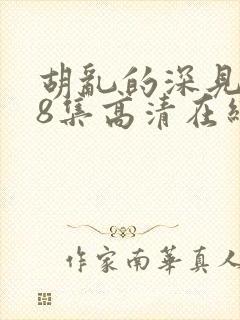 胡乱的深見
8集高清在線
作家南華真人